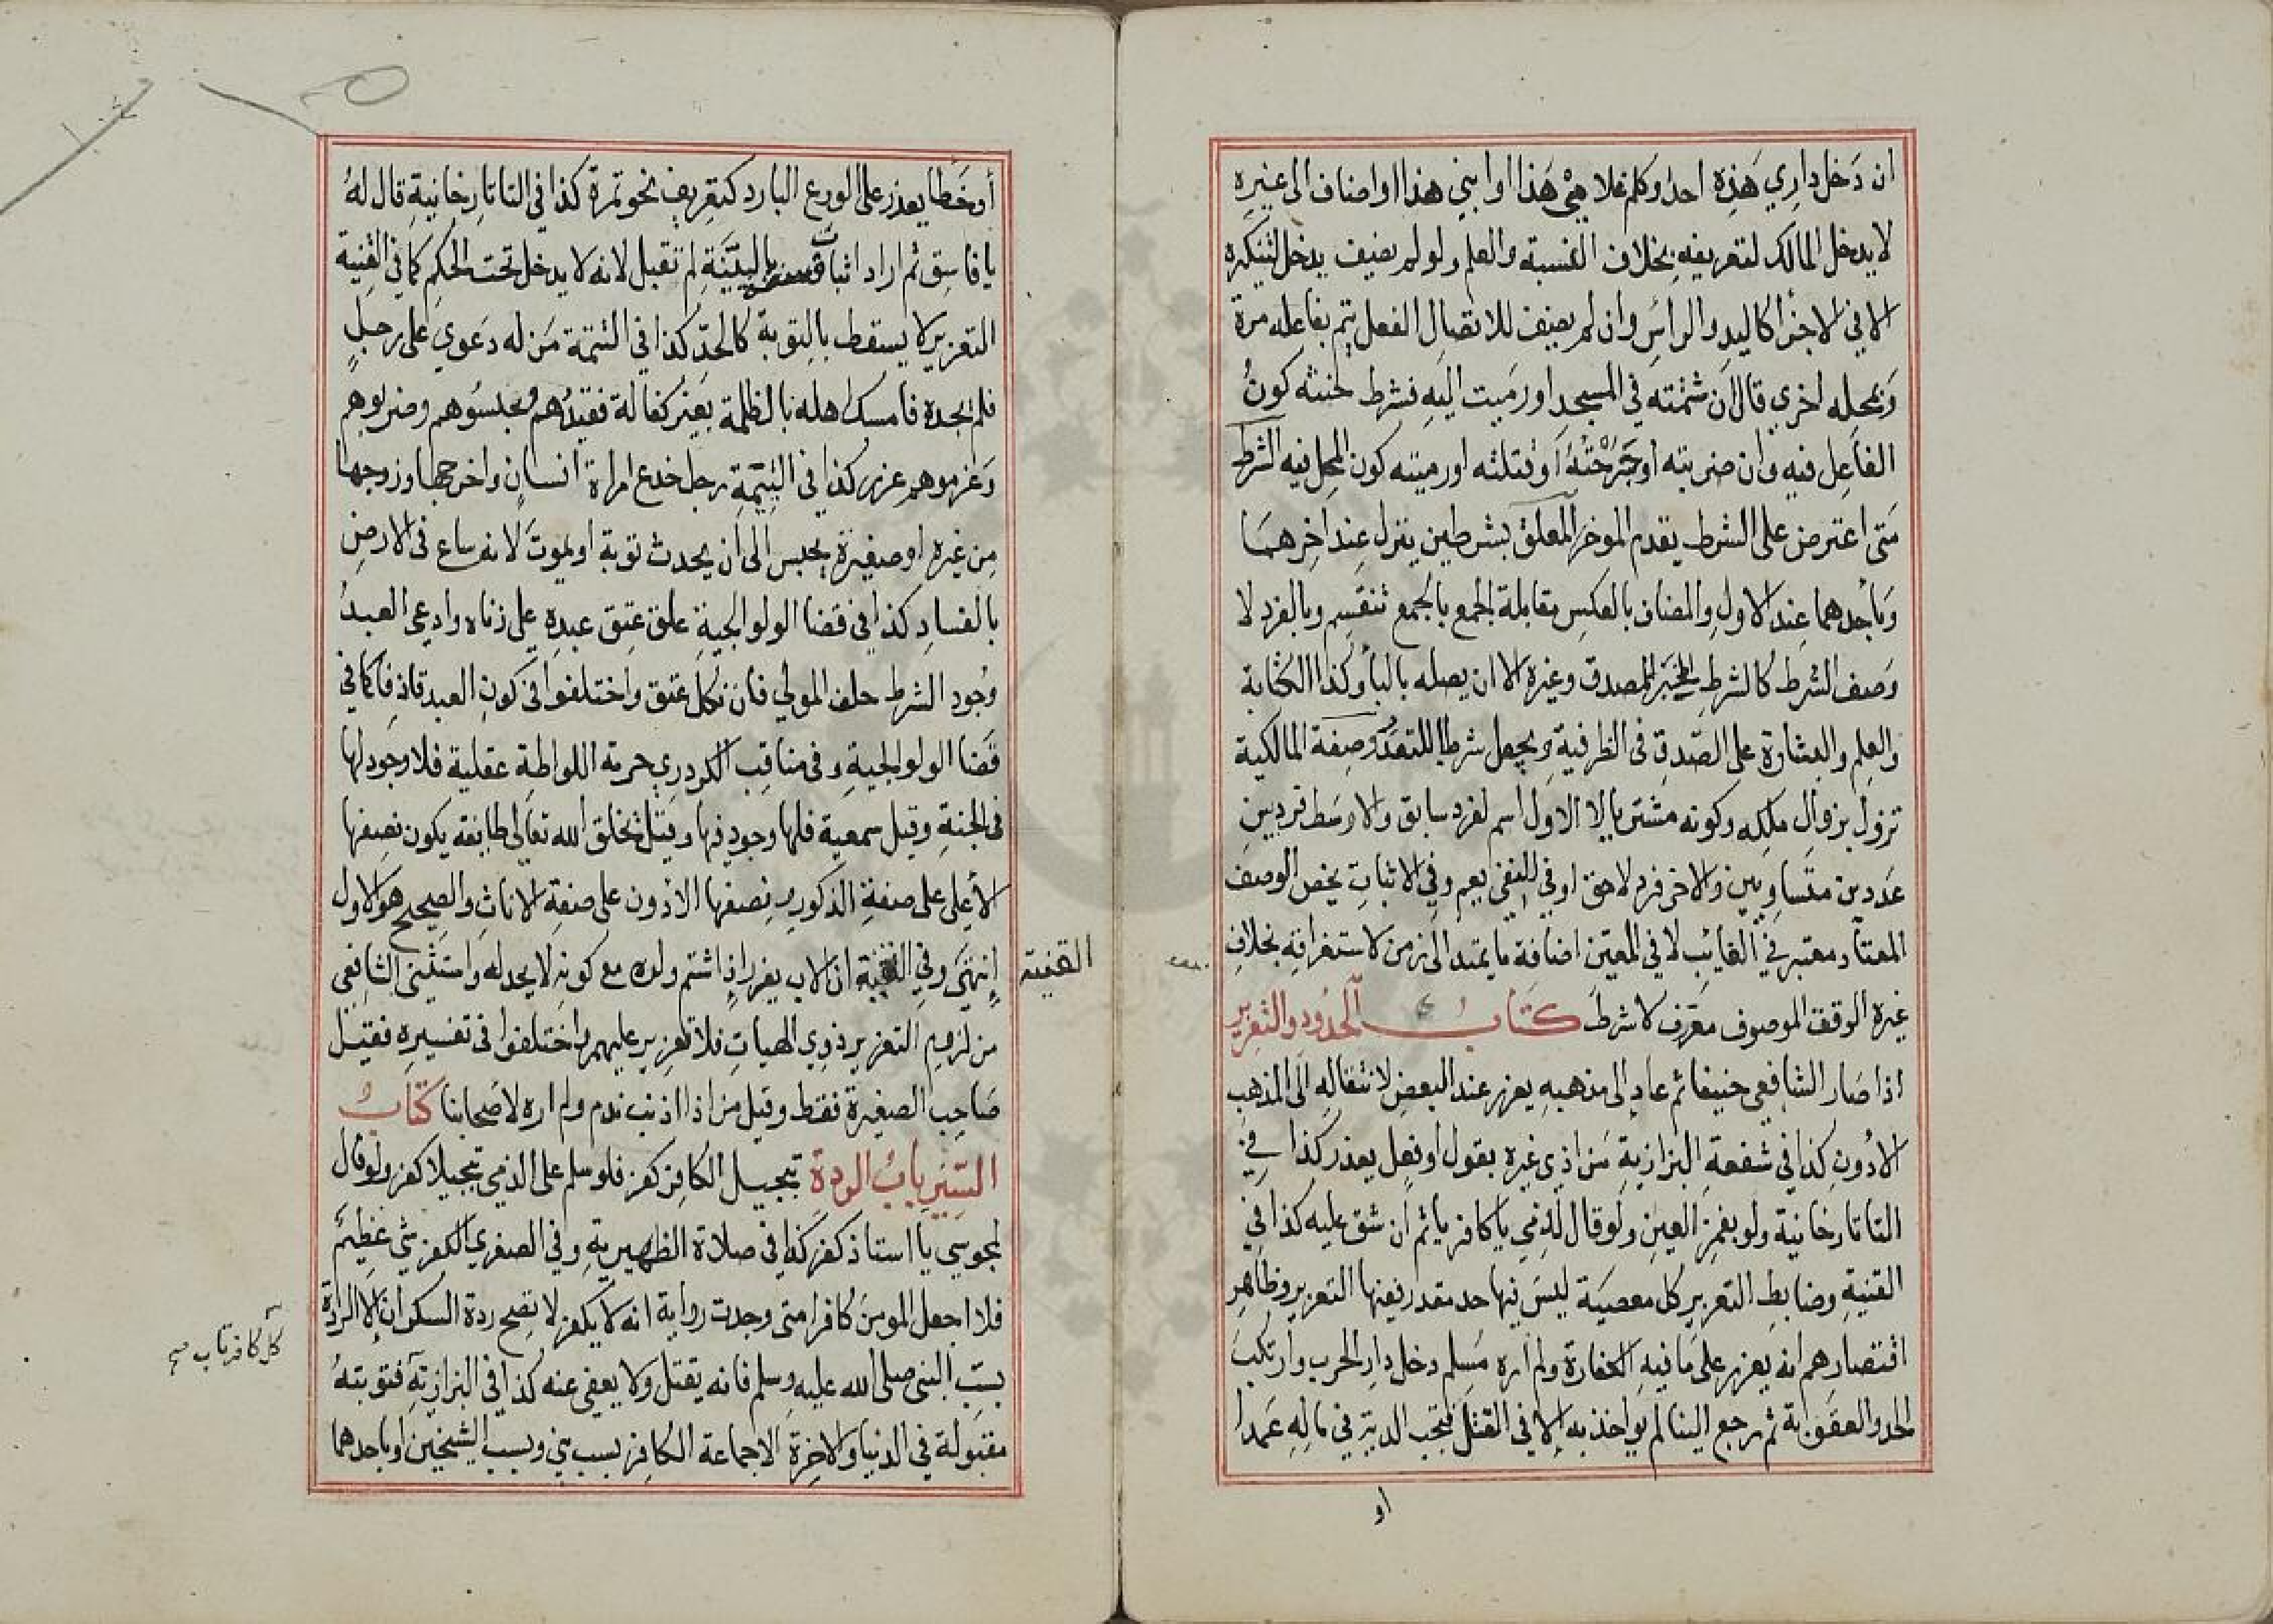 ان دخل داري هذه احد وكلم غلامي هذا او ابني هذا او اضاف الى غيره
لا يدخل المالك لتعريفه بخلاف النسبة والعلم ولو لم يضف يدخل لتنكيره
الا في الاجزا كاليد والراس وان لم يضف للاتصال الفعل يتم بفاعله مرة
وبمحله اخري قال ان شتمته في المسجد او رميت اليه فشرط حنثه كون
الفاعل فيه وان ضربته او جرحته او قتلته او رميته كون المحل فيه الشرط
متى اعترض على الشرط يقدم الموخر المعلق بشرطين ينزل عند اخرهما
وباحدهما عند الاول والمضاف بالعكس مقابلة الجمع بالجمع تنقسم وبالفرد لا
وصف الشرط كالشرط الخبر للمصدق وغيره الا ان يصله بالبا وكذا الكتابة
والعلم والبشارة على الصدق في الظرفية ويجعل شرطا للتعذر وصفة المالكية
تزول بزوال ملكه وكونه مشتريا لا الاول اسم لفرد سابق والاوسط فرد بين
عددين متساويين والاخر فرد لاحق او في النفي يعم وفي الاثبات يخص الوصف
المعتاد معتبر في الغائب لا في المعين اضافة ما يمتد الى زمن لاستغراقه بخلاف
غيره الوقف الموصوف معرف لا شرط كتاب الحدود والتعزير
اذا صار الشافعي حنيفا ثم عاد الى مذهبه يعزر عند البعض لانتقاله الى المذهب
الادون كذا في شفعة البزازية من اذي غيره بقول او فعل يعذر كذا في
التاتارخانية ولو بغمز العين ولو قال لذمي يا كافر ياثم ان شق عليه كذا في
القنية وضابط التعزير كل معصية ليس فيها حد مقدر ففيها التعزير وظاهر
اقتصارهم انه يعزر على ما فيه الكفارة ولم اره مسلم دخل دار الحرب وارتكب
الحد والعقوبة ثم رجع الينا لم يواخذ به الا في القتل فتجب الدية في ماله عمدا
او
أو خطا يعذر على الورع البارد كتعريف نحو تمرة كذا في التاتارخانية قال له
يا فاسق ثم اراد اثبات فسقه بالبينة لم تقبل لانه لا يدخل تحت الحكم كما في القنية
التعزير لا يسقط بالتوبة كالحد كذا في التتمة من له دعوي على رجل
فلم يجده فامسك اهله بالظلمة بغير كفالة فقيدهم وحبسوهم وضربوهم
وغرموهم عزر كذا في اليتيمة رجل خدع امراة انسان واخرجها وزوجها
من غيره او صغيرة يحبس الى ان يحدث توبة او يموت لانه ساع في الارض
بالفساد كذا في قضا الولوالجية علق عتق عبده على زناه وادعى العبد
وجود الشرط حلف المولي فان نكل عتق واختلفوا في كون العبد قاذفا كما في
قضا الولوالجية وفي مناقب الكردري حرمة اللواطة عقلية فلا وجود لها
في الجنة وقيل سمعية فلها وجود فيها وقيل يخلق الله تعالى طايفة يكون نصفها
الأعلى على صفة الذكور ونصفها الادون على صفة الاناث والصحيح هو الاول
إنتهى وفي القنية ان الاب يعزر اذا شتم ولده مع كونه لا يحد له واستثنى الشافعي
القنية
من لزوم التعزير ذوي الهيات فلا تعزير عليهم واختلفوا في تفسيره فقيل
صاحب الصغيرة فقط وقيل من اذا اذنب ندم ولم اره لاصحابنا كتاب
السير باب الردة تبجيل الكافر كفر فلو سلم على الذمي تبجيلا كفر ولو قال
لمجوسي يا استاذ كفر كذا في صلاة الظهيرية وفي الصغري الكفر شي عظيم
فلا اجعل المومن كافرا متى وجدت رواية انه لا يكفر لا تصح ردة السكران إلا الردة
بسب النبي صلى الله عليه وسلم فانه يقتل ولا يعفى عنه كذا في البزازية فتوبته
كل كافر تاب صح
مقبولة في الدنيا والاخرة الا جماعة الكافر بسب نبي وبسب الشيخين او باحدهما